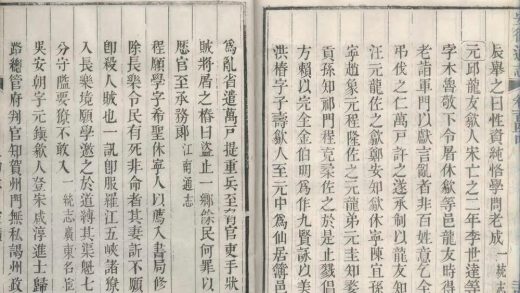 辰舉之曰性資純恪學問老成 一統志
元邱龍友歙人宋亡之二年李世達等
字木魯敬下令屠休歙等邑龍友時得
老詣軍門以獻言亂者非百姓意乞全
弔伐之仁萬戶許之遂承制以龍友知
汪元龍佐之歙鄭安知歙休寧陳宜孫
寧趙象元程隆佐之元龍弟元圭知婺
貢孫知祁門程克柔佐之於是止戮倡
方賴以完全金伯明為作九賢詠以美
洪椿字子壽歙人至元中為仙居簿邑
為亂省遣萬戶提重兵至官吏手狀
賊將屠之椿曰盜止一鄉餘民何罪以
歷官至承務郎 江南通志
程願學字希聖休寧人以薦入書局修
除長樂令民有死非命者其妻訴不願
卽殺人賊也一訊卽服羅江五峽諸獠
入長樂境願學邀之於道縛其渠魁七
分守隘要獠不敢入 一統志廣東名宦
吳安朝字元鎮歙人登宋咸淳進士歸
路總管府判官知賀州門無私謁州政